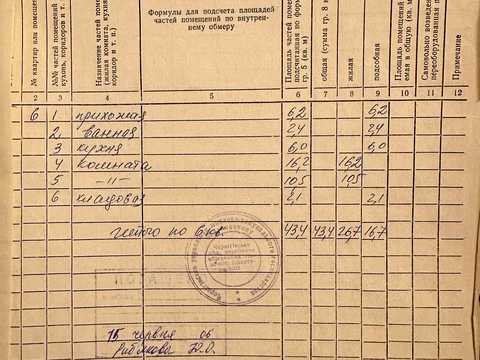 № квартир или помещений
№№ частей помещений
кухонь, коридоров и т. п.)
Назначение частей
(жилая комната, кухня,
коридор и т. п.)
Формулы для подсчета площадей
частей помещений по внутрен-
нему обмеру
Площадь частей
подсчитанная по форм.
гр. 5 (кв. м)
общая (сумма гр. 8
жилая
подсобная
Площадь помещений
емая в общую (кв. м)
Самовольно возведен
переоборудованная
Примечание
2 3 4 5 6 7 8 9 10 11 12
6 1 прихожая 6,2 6,2
2 ванная 2,4 2,4
3 кухня 6,0 6,0
4 комната 16,2 16,2
5 -"- 10,5 10,5
6 кладовая 2,1 2,1
по 6 кв. 43,4 43,4 26,7 16,7
15 червня 06